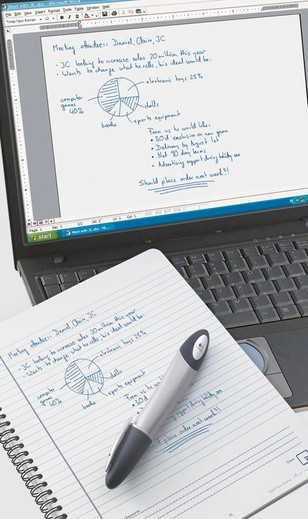 Meeting attendees: Daniel, Clair, JC
- JC looking to increase sales 20 million this year
- Wants to change what he sells, his ideal would be:
electronic toys 25%
computer games 40%
dolls
sports equipment
books
From us he would like:
• 30d exclusive on new game
• Delivery by August 1st
• Net 90 day terms
• Advertising support during holiday
Should place order next week!!
start
Meeting attendees: Daniel, Clair, JC
- JC looking to increase sales 20 million this year
- Wants to change what he sells, his ideal would be:
electronic toys 25%
computer games 40%
dolls
sports equipment
books
From us
• 30d
place order next week!!